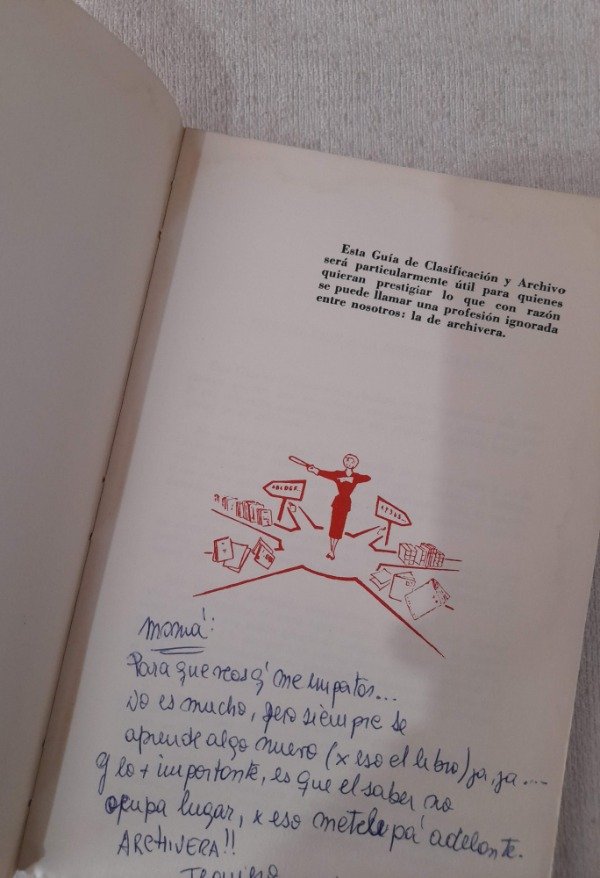 Esta Guía de Clasificación y Archivo
será particularmente útil para quienes
quieran prestigiar lo que con razón
se puede llamar una profesión ignorada
entre nosotros: la de archivera.
mamá:
Para que veas q' me importas...
No es mucho, pero siempre se
aprende algo nuevo (x eso el libro) ja, ja....
y lo + importante, es que el saber no
ocupa lugar, x eso metele pa' adelante.
ARCHIVERA!!
Te quiero